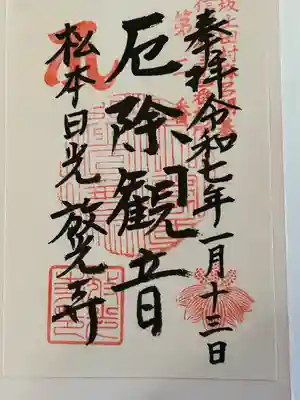 奉拝 令和七年一月十三日
厄除観音
松本日光 放光寺